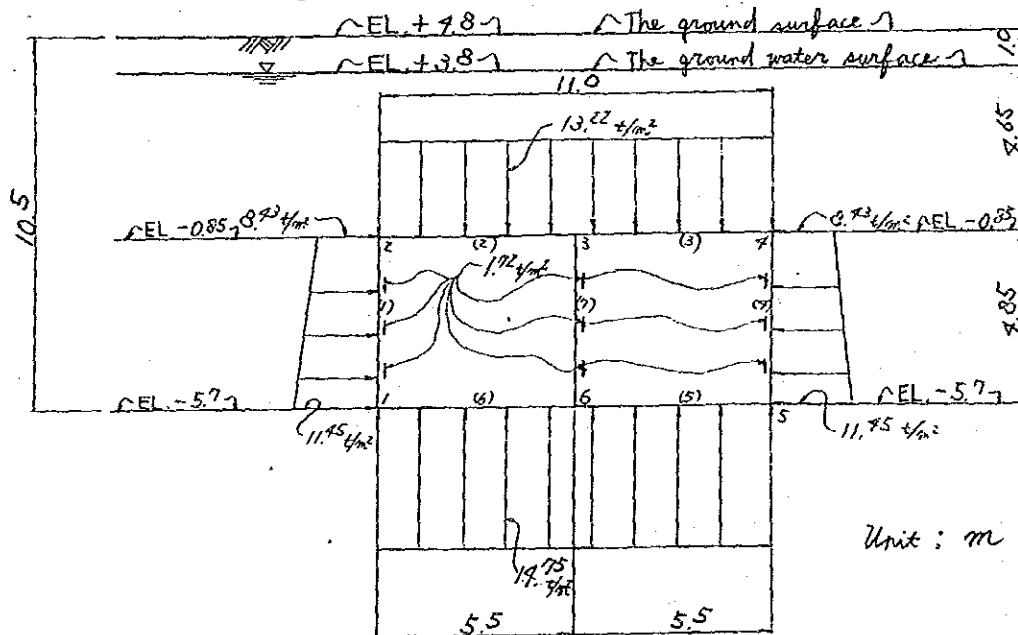 EL. +4.8 The ground surface
EL. +3.8 The ground water surface
1.0
11.0
13.22 t/m²
4.65
10.5
EL -0.85 8.43 t/m²
8.43 t/m² EL -0.85
2 (2) 3 (3) 4
1.72 t/m²
(1) (7)
4.85
EL. -5.7 1 (6) 6 (5) 5 EL. -5.7
11.45 t/m²
11.45 t/m²
14.75 t/m²
Unit : m
5.5 5.5